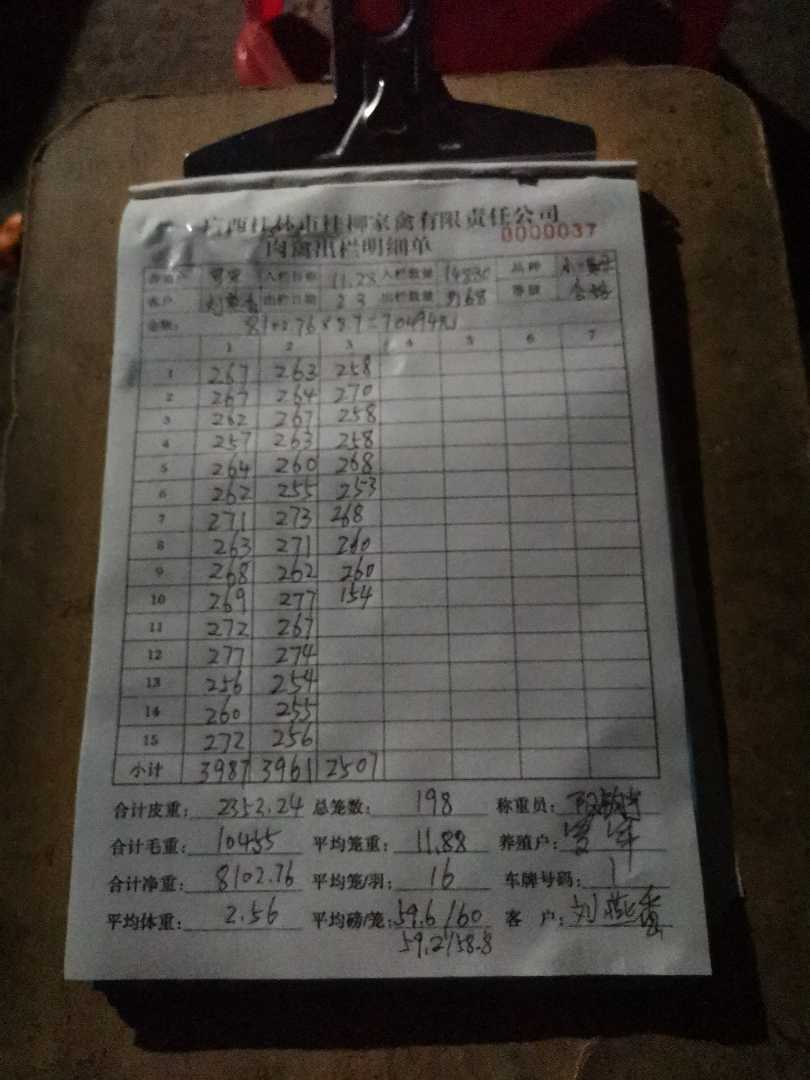 广西桂林市桂柳家禽有限责任公司
肉禽出栏明细单 0000037
养殖户 入栏日期 11.28 入栏数量 14830 品种
客户 刘燕香 出栏日期 2 3 出栏数量 3168 等级 合格
金额: 8102.76×8.7=70494元
1 2 3 4 5 6 7
1 267 263 258
2 267 264 270
3 262 267 258
4 257 263 258
5 264 260 268
6 262 255 253
7 271 273 268
8 263 271 260
9 268 262 260
10 269 277 154
11 272 267
12 277 274
13 256 254
14 260 255
15 272 256
小计 3987 3961 2507
合计皮重: 2352.24 总笼数: 198 称重员:
合计毛重: 10455 平均笼重: 11.88 养殖户:
合计净重: 8102.76 平均笼/羽: 16 车牌号码: 1
平均体重: 2.56 平均磅/笼: 59.6/60 客 户: 刘燕香
59.2/58.8